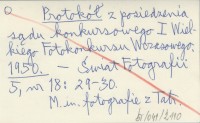 Protokół z posiedzenia
sądu konkursowego I Wiel-
kiego Fotokonkursu Wczasowego.
1950. — Świat Fotografii
5, nr 18: 29-30.
M.in. fotografie z Tatr.